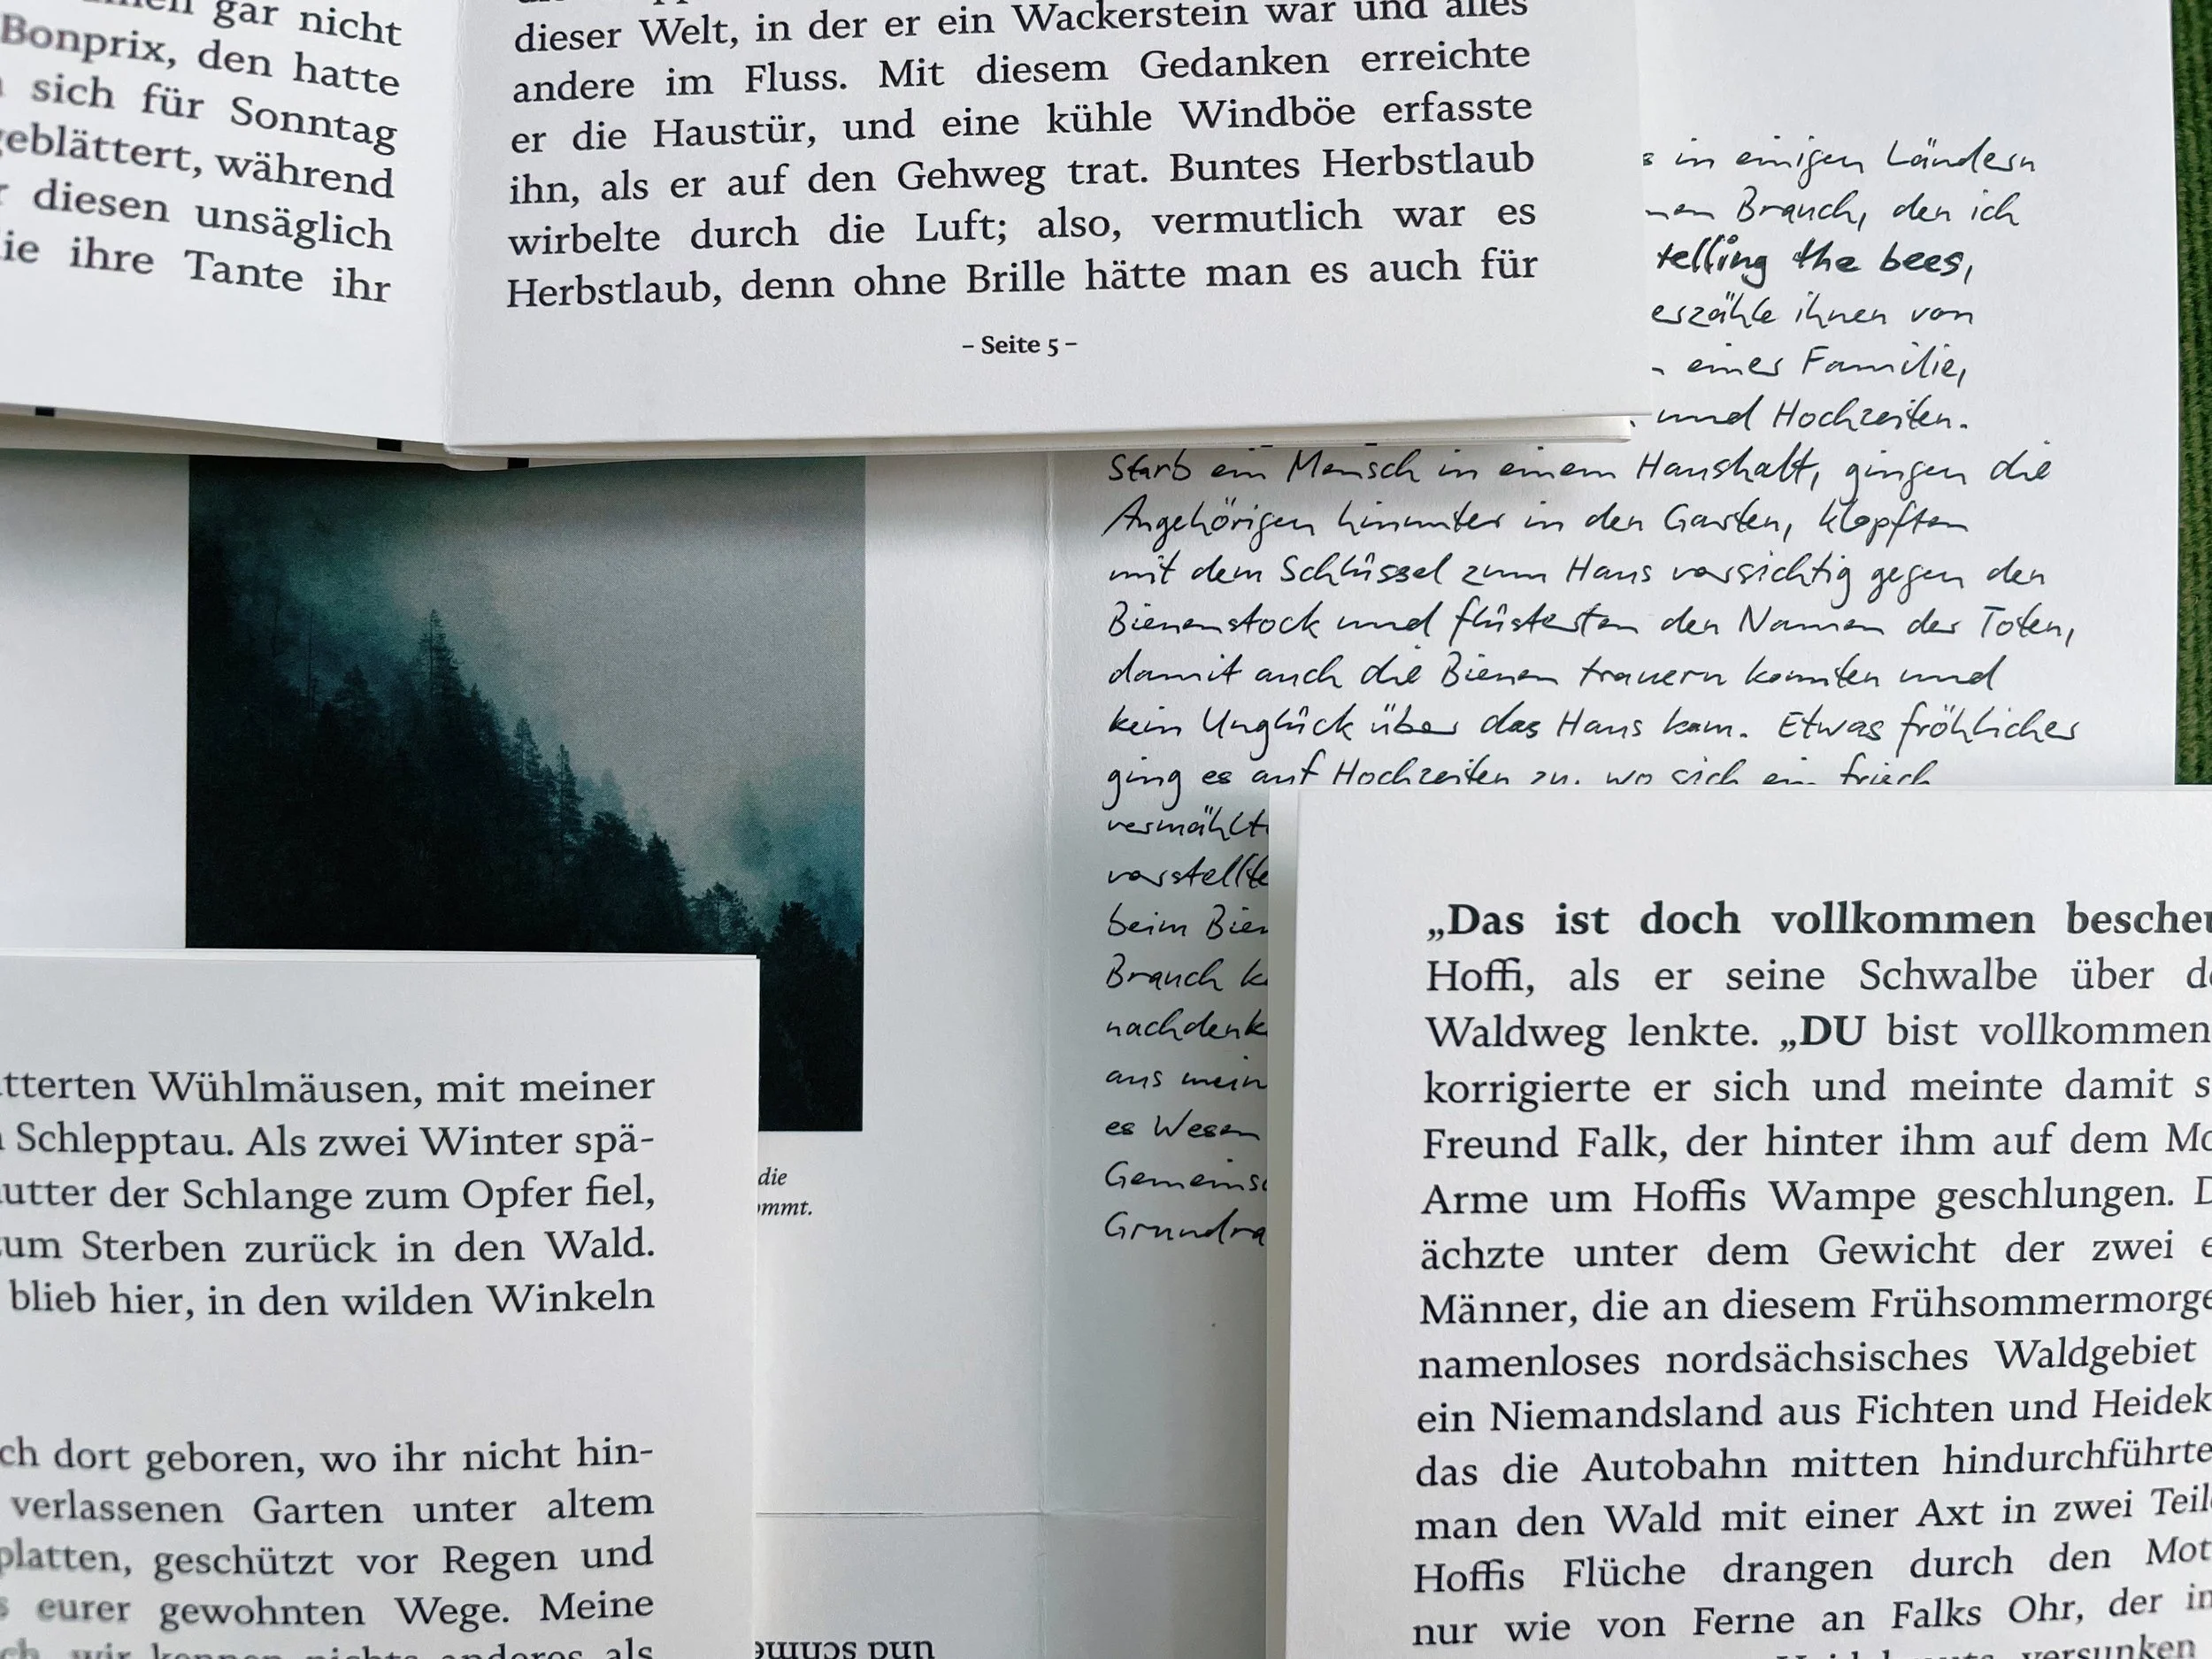 gar nicht
Bonprix, den hatte
sich für Sonntag
geblättert, während
diesen unsäglich
ihre Tante ihr
dieser Welt, in der er ein Wackerstein war und alles
andere im Fluss. Mit diesem Gedanken erreichte
er die Haustür, und eine kühle Windböe erfasste
ihn, als er auf den Gehweg trat. Buntes Herbstlaub
wirbelte durch die Luft; also, vermutlich war es
Herbstlaub, denn ohne Brille hätte man es auch für
– Seite 5 –
in einigen Ländern
Brauch, den ich
telling the bees,
erzähle ihnen von
einer Familie,
und Hochzeiten.
Starb ein Mensch in einem Haushalt, gingen die
Angehörigen hinunter in den Garten, klopften
mit dem Schlüssel zum Haus vorsichtig gegen den
Bienenstock und flüsterten den Namen der Toten,
damit auch die Bienen trauern konnten und
kein Unglück über das Haus kam. Etwas fröhlicher
ging es auf Hochzeiten zu, wo sich ein frisch
vermählt
vorstellte
beim Bien
Brauch k
nachdenk
aus mein
es Wesen
Gemeins
Grundra
die
ommt.
tterten Wühlmäusen, mit meiner
Schlepptau. Als zwei Winter spä-
utter der Schlange zum Opfer fiel,
um Sterben zurück in den Wald.
blieb hier, in den wilden Winkeln
ch dort geboren, wo ihr nicht hin-
verlassenen Garten unter altem
platten, geschützt vor Regen und
eurer gewohnten Wege. Meine
wir kennen nichts anderes als
und schme
„Das ist doch vollkommen bescheu
Hoffi, als er seine Schwalbe über d
Waldweg lenkte. „DU bist vollkommen
korrigierte er sich und meinte damit s
Freund Falk, der hinter ihm auf dem Mo
Arme um Hoffis Wampe geschlungen. D
ächzte unter dem Gewicht der zwei e
Männer, die an diesem Frühsommermorge
namenloses nordsächsisches Waldgebiet
ein Niemandsland aus Fichten und Heidek
das die Autobahn mitten hindurchführte
man den Wald mit einer Axt in zwei Teil
Hoffis Flüche drangen durch den Mot
nur wie von Ferne an Falks Ohr, der in
versunken